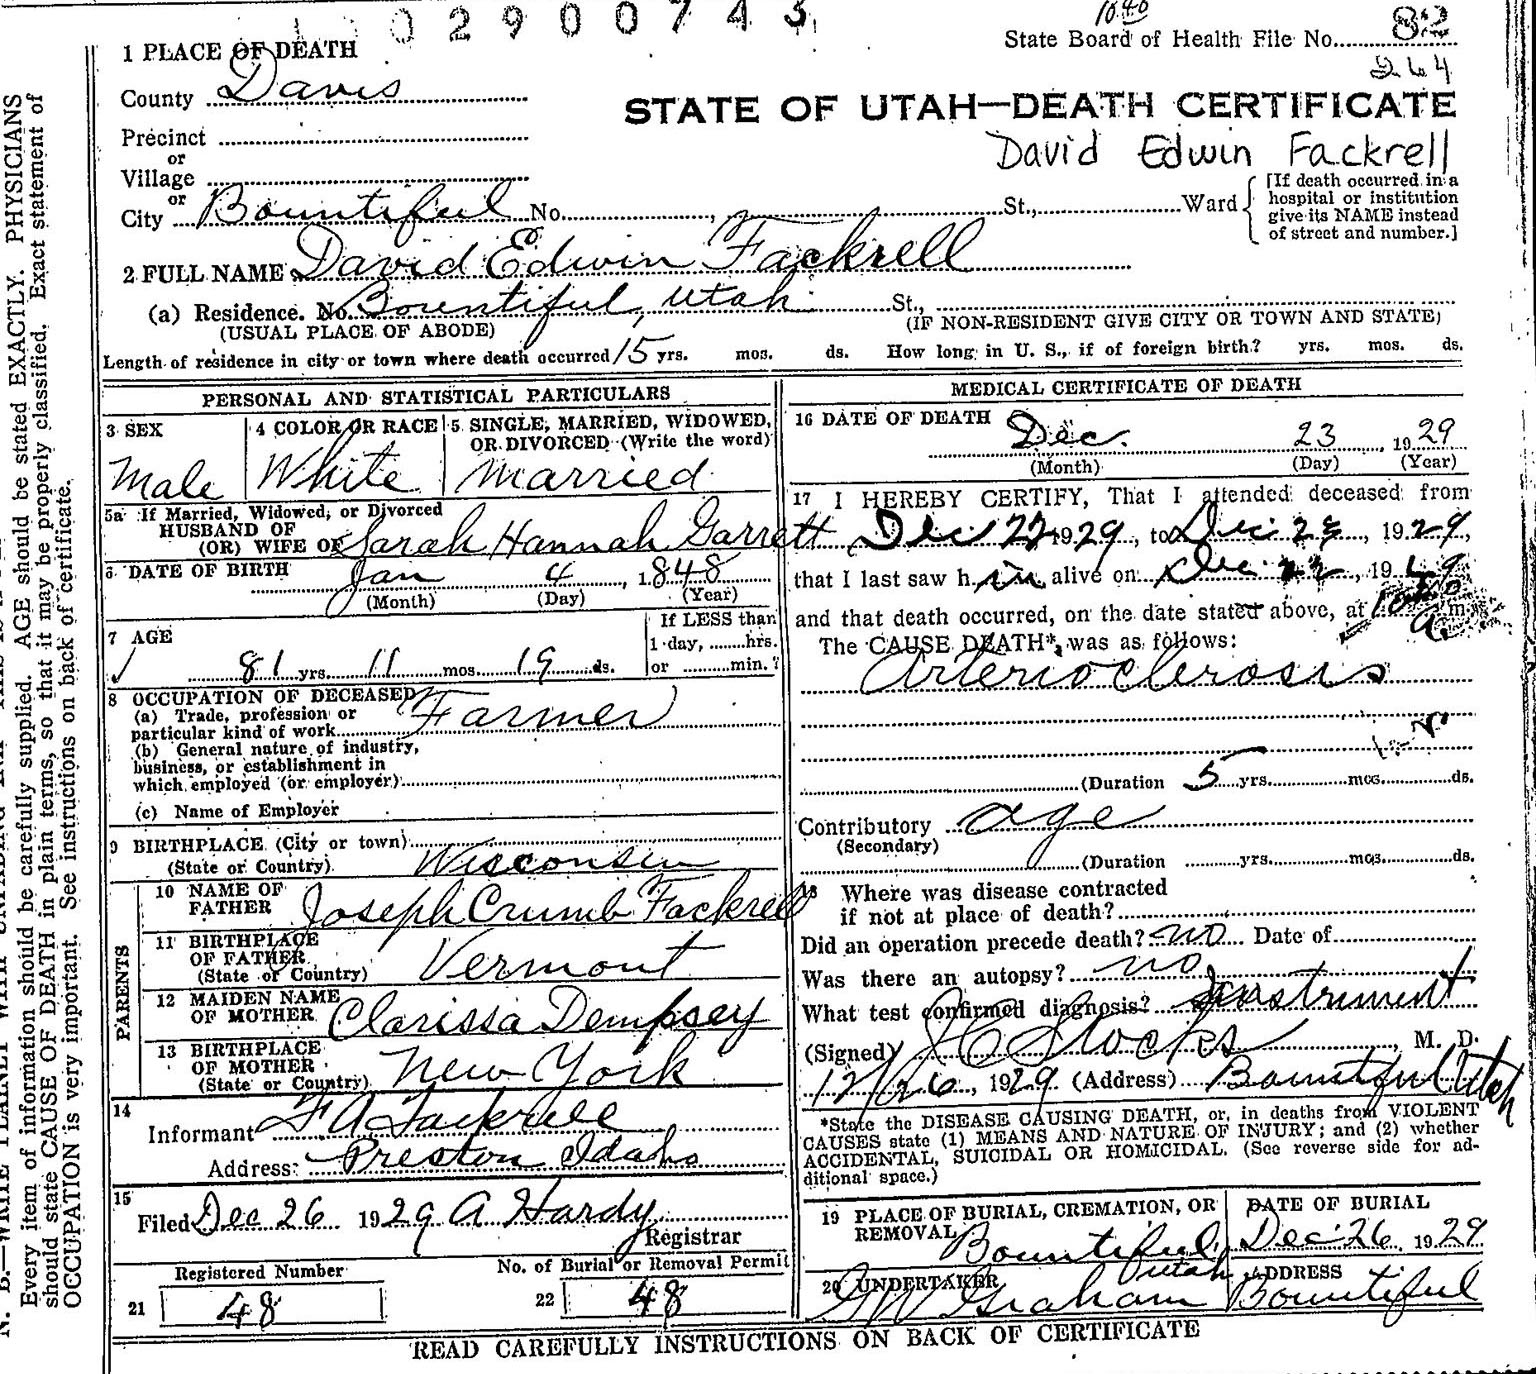 02900743
1 PLACE OF DEATH
State Board of Health File No. 82
264
County Davis
STATE OF UTAH—DEATH CERTIFICATE
Precinct
or
David Edwin Fackrell
Village
or
City Bountiful No. , St., Ward
[If death occurred in a
hospital or institution
give its NAME instead
of street and number.]
2 FULL NAME David Edwin Fackrell
(a) Residence. No. Bountiful, Utah St.,
(USUAL PLACE OF ABODE) (IF NON-RESIDENT GIVE CITY OR TOWN AND STATE)
Length of residence in city or town where death occurred 15 yrs. mos. ds. How long in U. S., if of foreign birth? yrs. mos. ds.
PERSONAL AND STATISTICAL PARTICULARS
3 SEX
Male
4 COLOR OR RACE
White
5 SINGLE, MARRIED, WIDOWED,
OR DIVORCED (Write the word)
Married
5a If Married, Widowed, or Divorced
HUSBAND OF
(OR) WIFE OF Sarah Hannah Garrett
6 DATE OF BIRTH Jan 4, 1848
(Month) (Day) (Year)
7 AGE
81 yrs. 11 mos. 19 ds.
If LESS than
1 day, hrs.
or min.?
8 OCCUPATION OF DECEASED
(a) Trade, profession or
particular kind of work Farmer
(b) General nature of industry,
business, or establishment in
which employed (or employer)
(c) Name of Employer
9 BIRTHPLACE (City or town)
(State or Country) Wisconsin
PARENTS
10 NAME OF
FATHER Joseph Crumb Fackrell
11 BIRTHPLACE
OF FATHER
(State or Country) Vermont
12 MAIDEN NAME
OF MOTHER Clarissa Dempsey
13 BIRTHPLACE
OF MOTHER
(State or Country) New York
14
Informant F A Fackrell
Address: Preston Idaho
15
Filed Dec 26 1929 A Hardy
Registrar
Registered Number
21 48
No. of Burial or Removal Permit
22 48
MEDICAL CERTIFICATE OF DEATH
16 DATE OF DEATH Dec. 23, 1929
(Month) (Day) (Year)
17 I HEREBY CERTIFY, That I attended deceased from
Dec 22 1929, to Dec 23, 1929,
that I last saw h im alive on Dec 22, 1929
and that death occurred, on the date stated above, at m
The CAUSE DEATH*, was as follows:
Arterioclerosis
(Duration 5 yrs. mos. ds.
Contributory age
(Secondary)
(Duration yrs. mos. ds.
18 Where was disease contracted
if not at place of death?
Did an operation precede death? no Date of
Was there an autopsy? no
What test confirmed diagnosis? Instrument
(Signed) J C Stocks, M. D.
12/26, 1929 (Address) Bountiful Utah
*State the DISEASE CAUSING DEATH, or, in deaths from VIOLENT
CAUSES state (1) MEANS AND NATURE OF INJURY; and (2) whether
ACCIDENTAL, SUICIDAL OR HOMICIDAL. (See reverse side for ad-
ditional space.)
19 PLACE OF BURIAL, CREMATION, OR
REMOVAL Bountiful,
Utah
DATE OF BURIAL
Dec 26, 1929
20 UNDERTAKER
G W Graham
ADDRESS
Bountiful
READ CAREFULLY INSTRUCTIONS ON BACK OF CERTIFICATE
Every item of information should be carefully supplied. AGE should be stated EXACTLY. PHYSICIANS
should state CAUSE OF DEATH in plain terms, so that it may be properly classified. Exact statement of
OCCUPATION is very important. See instructions on back of certificate.